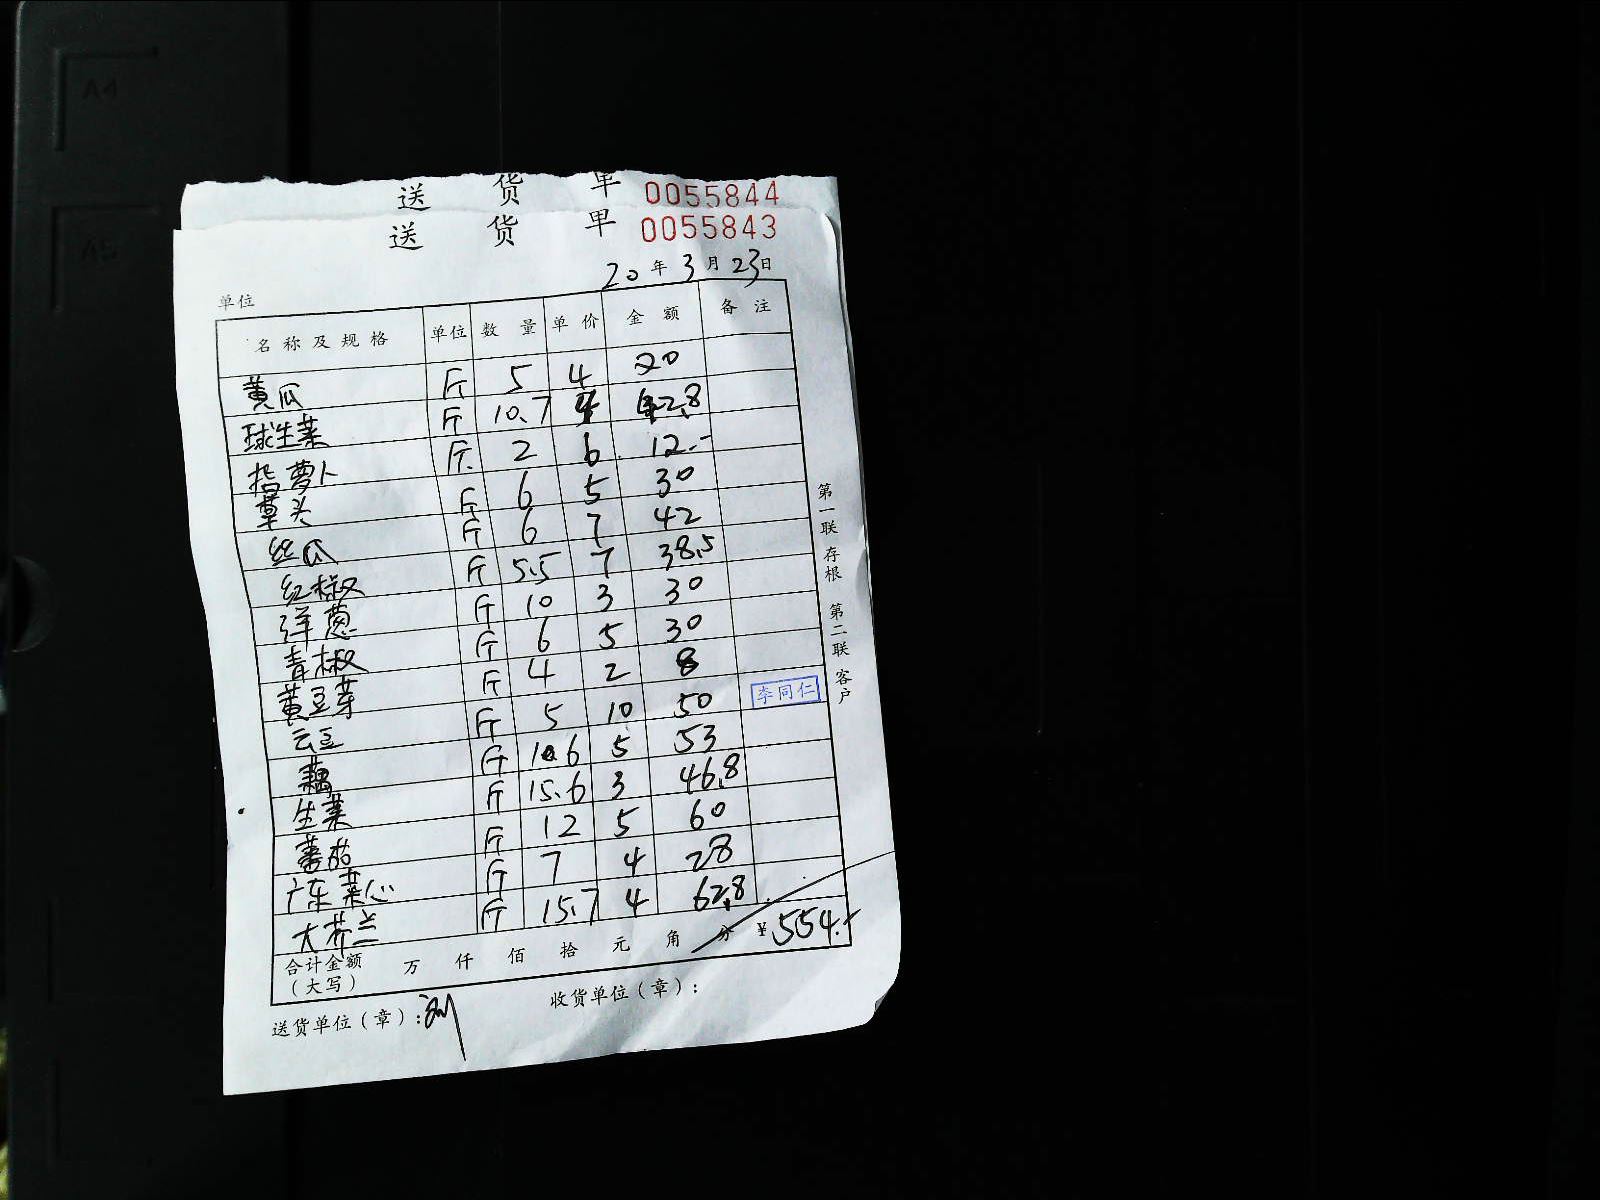 A4
A5
送 货 单 0055844
送 货 单 0055843
20 年 3 月 23 日
单位
名称及规格 单位 数量 单价 金额 备注
黄瓜 斤 5 4 20
球生菜 斤 10.7 4 42.8
指萝卜 斤 2 6 12.-
草头 斤 6 5 30
丝瓜 斤 6 7 42
红椒 斤 5.5 7 38.5
洋葱 斤 10 3 30
青椒 斤 6 5 30
黄豆芽 斤 4 2 8
云豆 斤 5 10 50
藕 斤 10.6 5 53
生菜 斤 15.6 3 46.8
蕃茄 斤 12 5 60
广东菜心 斤 7 4 28
大芥兰 斤 15.7 4 62.8
合计金额（大写） 万 仟 佰 拾 元 角 分 ¥554.-
送货单位（章）：刘 收货单位（章）：
第一联 存根 第二联 客户
李同仁